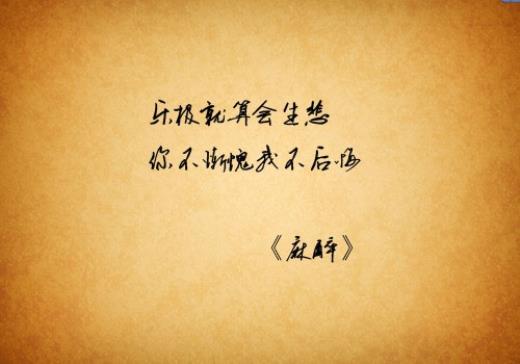 乐极就算会生悲
你不惭愧我不后悔
《麻醉》